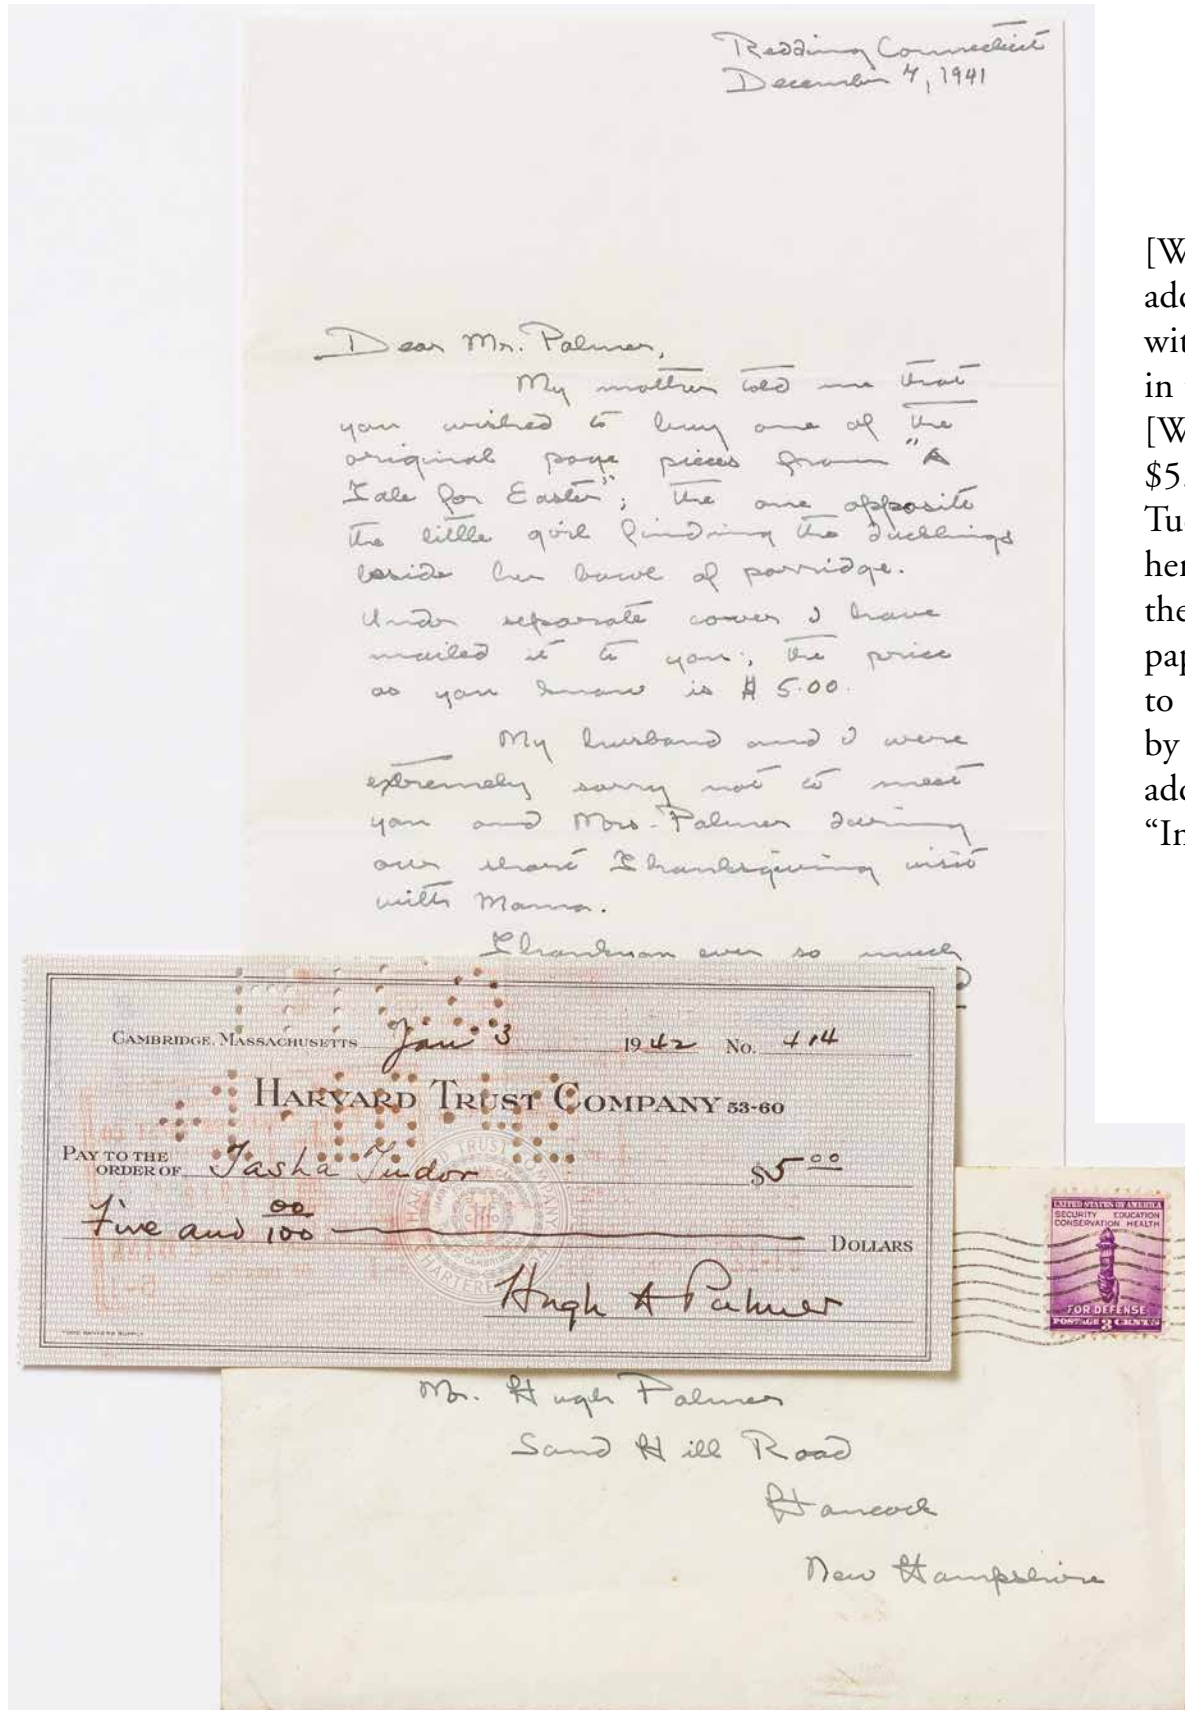 Redding Connecticut
December 7, 1941
Dear Mr. Palmer,
My mother told me that
you wished to buy one of the
original page pieces from "A
Tale for Easter"; the one opposite
the little girl finding the ducklings
beside her bowl of porridge.
Under separate cover I have
mailed it to you; the price
as you know is $ 5.00.
My husband and I were
extremely sorry not to meet
you and Mrs. Palmer during
our short Thanksgiving visit
with Mama.
Thankyou ever so much
CAMBRIDGE, MASSACHUSETTS Jan 3 1942 No. 414
HARVARD TRUST COMPANY 53-60
PAY TO THE
ORDER OF Tasha Tudor $5 00
Five and 00/100 DOLLARS
Hugh A Palmer
TODD BANKERS SUPPLY
UNITED STATES OF AMERICA
SECURITY EDUCATION
CONSERVATION HEALTH
FOR DEFENSE
POSTAGE 3 CENTS
Mr. Hugh Palmer
Sand Hill Road
Hancock
New Hampshire
[W
in
[W
to
by
"In